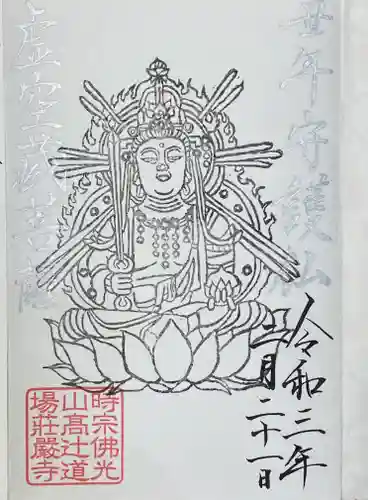 丑年守護仏
虚空蔵菩薩
令和三年
二月二十一日
時宗佛光
山高辻道
場莊嚴寺